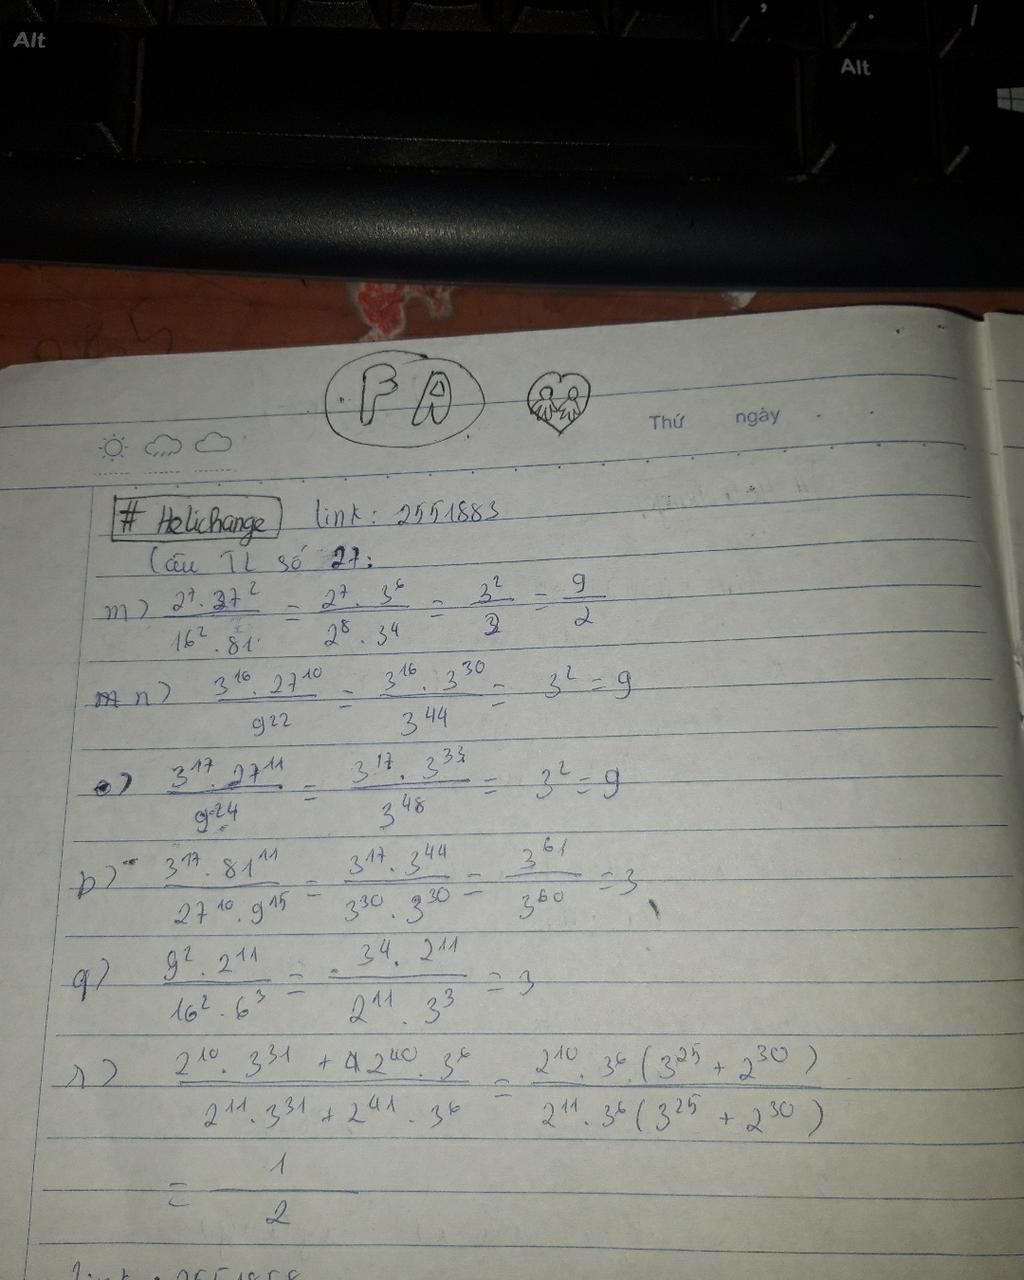 Alt
Alt
FA
Thứ ngày
# Helichange link: 2551883
Câu TL số 27:
m) \frac{2^7 . 27^2}{16^2 . 81} = \frac{2^7 . 3^6}{2^8 . 3^4} = \frac{3^2}{2} = \frac{9}{2}
n) \frac{3^{16} . 27^{10}}{9^{22}} = \frac{3^{16} . 3^{30}}{3^{44}} = 3^2 = 9
o) \frac{3^{17} . 27^{11}}{9^{24}} = \frac{3^{17} . 3^{33}}{3^{48}} = 3^2 = 9
p) \frac{3^{17} . 81^{11}}{27^{10} . 9^{15}} = \frac{3^{17} . 3^{44}}{3^{30} . 3^{30}} = \frac{3^{61}}{3^{60}} = 3
q) \frac{9^2 . 2^{11}}{16^2 . 6^3} = \frac{3^4 . 2^{11}}{2^{11} . 3^3} = 3
r) \frac{2^{10} . 3^{31} + 2^{40} . 3^6}{2^{11} . 3^{31} + 2^{41} . 3^6} = \frac{2^{10} . 3^6 . (3^{25} + 2^{30})}{2^{11} . 3^6 (3^{25} + 2^{30})}
= \frac{1}{2}